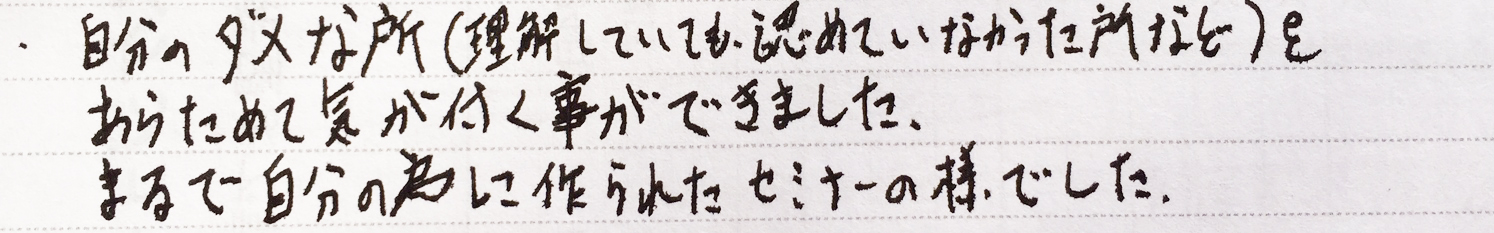 ・自分のダメな所(理解していても、認めていなかった所など)を
あらためて気が付く事ができました、
まるで自分の為に作られたセミナーの様でした。